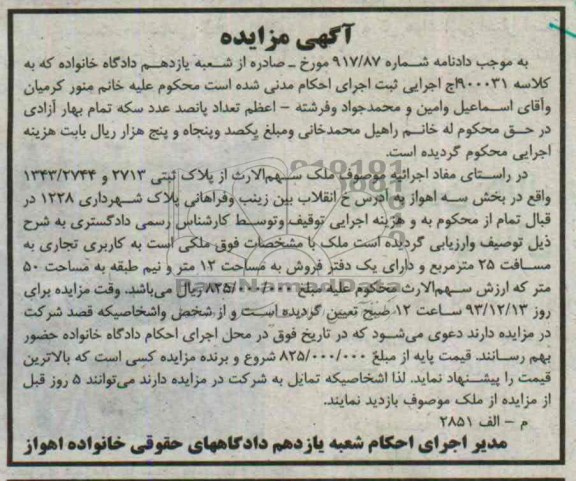 آگهی مزایده
به موجب دادنامه شماره ۹۱۷/۸۷ مورخ ـ صادره از شعبه یازدهم دادگاه خانواده که به
کلاسه ۹۰۰۰۳۱اج اجرایی ثبت اجرای احکام مدنی شده است محکوم علیه خانم منور کرمیان
وآقای اسماعیل وامین و محمدجواد وفرشته – اعظم تعداد پانصد عدد سکه تمام بهار آزادی
در حق محکوم له خانم راهیل محمدخانی ومبلغ یکصد وپنجاه و پنج هزار ریال بابت هزینه
اجرایی محکوم گردیده است.
در راستای مفاد اجرائیه موصوف ملک سهم‌الارث از پلاک ثبتی ۲۷۱۳ و ۱۳۴۳/۲۷۴۴
واقع در بخش سه اهواز به ادرس خ انقلاب بین زینب وفراهانی پلاک شهرداری ۱۲۲۸ در
قبال تمام از محکوم به و هزینه اجرایی توقیف وتوسط کارشناس رسمی دادگستری به شرح
ذیل توصیف وارزیابی گردیده است ملک با مشخصات فوق ملکی است به کاربری تجاری به
مسافت ۲۵ مترمربع و دارای یک دفتر فروش به مساحت ۱۲ متر و نیم طبقه به مساحت ۵۰
متر که ارزش سهم‌الارث محکوم علیه مبلغ ۸۲۵/۰۰۰/۰۰۰ ریال می‌باشد. وقت مزایده برای
روز ۹۳/۱۲/۱۳ ساعت ۱۲ صبح تعیین گردیده است و از شخص واشخاصیکه قصد شرکت
در مزایده دارند دعوی می‌شود که در تاریخ فوق در محل اجرای احکام دادگاه خانواده حضور
بهم رسانند. قیمت پایه از مبلغ ۸۲۵/۰۰۰/۰۰۰ شروع و برنده مزایده کسی است که بالاترین
قیمت را پیشنهاد نماید. لذا اشخاصیکه تمایل به شرکت در مزایده دارند می‌توانند ۵ روز قبل
از مزایده از ملک موصوف بازدید نمایند.
م – الف ۲۸۵۱
مدیر اجرای احکام شعبه یازدهم دادگاههای حقوقی خانواده اهواز